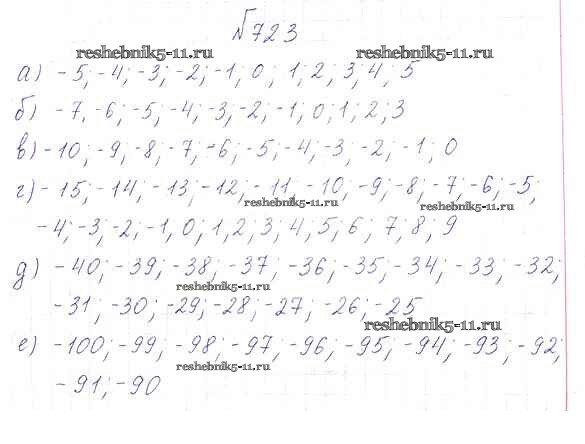 №723
reshebnik5-11.ru reshebnik5-11.ru
а) -5; -4; -3; -2; -1; 0; 1; 2; 3; 4; 5
б) -7, -6; -5; -4; -3; -2; -1; 0; 1; 2; 3
в) -10; -9; -8; -7; -6; -5; -4; -3; -2; -1; 0
г) -15; -14; -13; -12; -11; -10; -9; -8; -7; -6; -5;
reshebnik5-11.ru reshebnik5-11.ru
-4; -3; -2; -1, 0; 1; 2; 3; 4; 5; 6; 7; 8; 9
д) -40; -39; -38; -37; -36; -35; -34; -33; -32;
reshebnik5-11.ru
-31; -30; -29; -28; -27; -26; -25
reshebnik5-11.ru
е) -100; -99; -98; -97; -96; -95; -94; -93; -92;
reshebnik5-11.ru
-91; -90